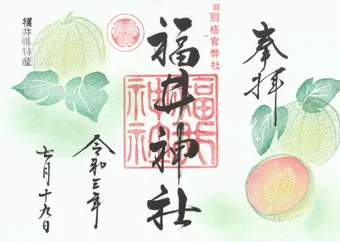 奉拝
旧別格官弊社
福井神社
福井神社
令和三年
七月十九日
福井県特産